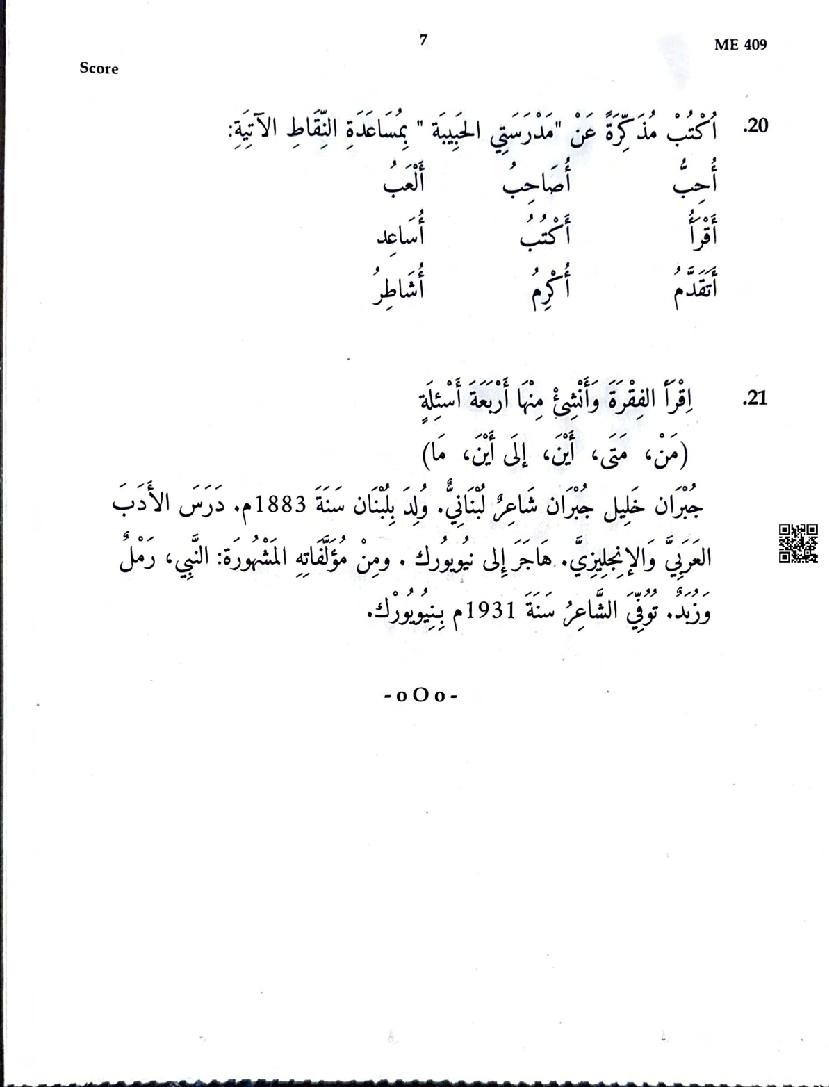 7
ME 409
Score
20. اُكْتُبْ مُذَكِّرَةً عَنْ "مَدْرَسَتِي الحَبِيبَة " بِمُسَاعَدَةِ النِّقَاطِ الآتِيَةِ:
أُحِبُّ أُصَاحِبُ أَلْعَبُ
أَقْرَأُ أَكْتُبُ أُسَاعِد
أَتَقَدَّمُ أُكْرِمُ أُشَاطِرُ
21. اِقْرَأ الفِقْرَةَ وَأَنْشِئْ مِنْهَا أَرْبَعَةَ أَسْئِلَةٍ
(مَنْ، مَتَى، أَيْنَ، إلَى أَيْنَ، مَا)
جُبْرَان خَلِيل جُبْرَان شَاعِرٌ لُبْنَانِيٌّ. وُلِدَ بِلُبْنَان سَنَةَ 1883م. دَرَسَ الأَدَبَ
العَرَبِيَّ وَالإنِجلِيزِيَّ. هَاجَرَ إلى نيُويُورك . ومِنْ مُؤَلَّفَاتِهِ المَشْهُورَة: النَّبِي، رَمْلٌ
وَزُبَدٌ. تُوُفِّيَ الشَّاعِرُ سَنَةَ 1931م بِنِيُويُورْك.
- o O o -